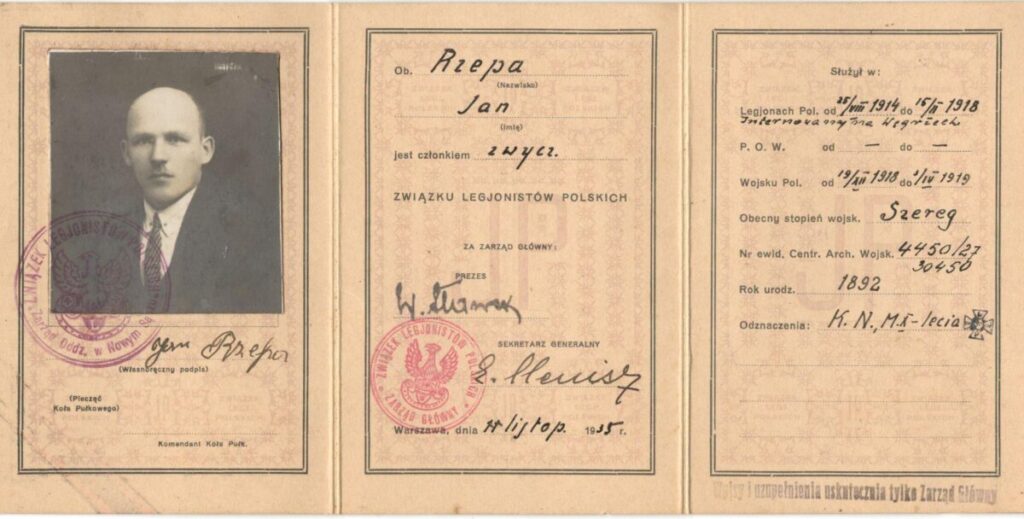 ZWIĄZEK LEGJONISTÓW
Zarząd Oddz. w Nowym
Jan Rzepa
(Własnoręczny podpis)
(Pieczęć
Koła Pułkowego)
Komendant Koła Pułk.
Ob. Rzepa
(Nazwisko)
Jan
(Imię)
jest członkiem zwycz.
ZWIĄZKU LEGJONISTÓW POLSKICH
ZA ZARZĄD GŁÓWNY:
PREZES
W. Sławek
SEKRETARZ GENERALNY
ZWIĄZEK LEGJONISTÓW POLSKICH
ZARZĄD GŁÓWNY
Warszawa, dnia 11 listop. 1935 r.
Służył w:
Legjonach Pol. od 25/VIII 1914 do 15/II 1918
Internowany na Węgrzech
P. O. W. od — do —
Wojsku Pol. od 19/XII 1918 do 1/IV 1919
Obecny stopień wojsk. Szereg
Nr ewid. Centr. Arch. Wojsk. 4450/27
30450
Rok urodz. 1892
Odznaczenia: K. N., M. X-lecia
Wpisy i uzupełnienia uskutecznia tylko Zarząd Główny